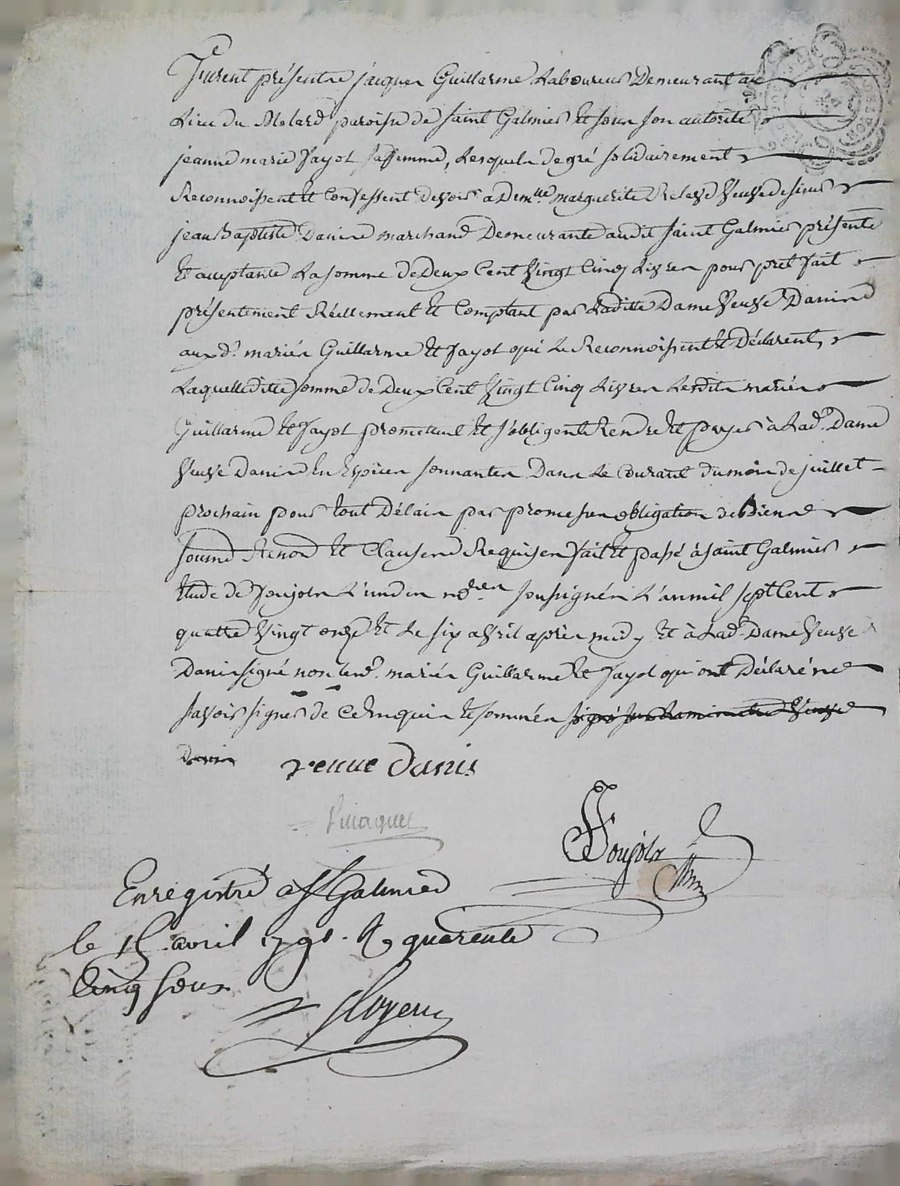 Furent présentre jacques Guillarme Laboureur Demeurant au
Lieu du Molard paroisse de saint Galmier et sous son autorité
jeanne marie Fayol sa femme, Lesquels de gré solidairement
Reconnoissent et Confessent devoir a Demlle marguerite veuve de sieur
jean Baptiste Danis marchand Demeurante audit saint Galmier présente
et acceptante La somme de Deux Cent vingt Cinq Livres pour pret fait
présentement Réellement et Comptant par Laditte Dame veuve Danis
aux dts mariés Guillarme et Fayol qui Le Reconnoissent et Déclarent,
Laquelle ditte somme de Deux Cent vingt Cinq Livres Lesdits mariés
Guillarme et Fayol promettent et s'obligent Rendre et payer à Lade Dame
veuve Danis En Espèces sonnantes Dans Le Courant du mois de juillet
prochain pour tout Délais par promesse obligation de Biens
soumd Renond et Clauses Requises fait et passé à saint Galmier
étude de L'un des nores soussignés L'an mil sept Cent
quattre vingt onze et Le six avril après midy et à Lade Dame veuve
Danis signé non Lesds mariés Guillarme et Fayol qui ont Déclaré ne
savoir signer de Ce Enquis et sommés
veuve danis
Enregistré a St Galmier
le 15 avril 1791. R quarente
Cinq sous